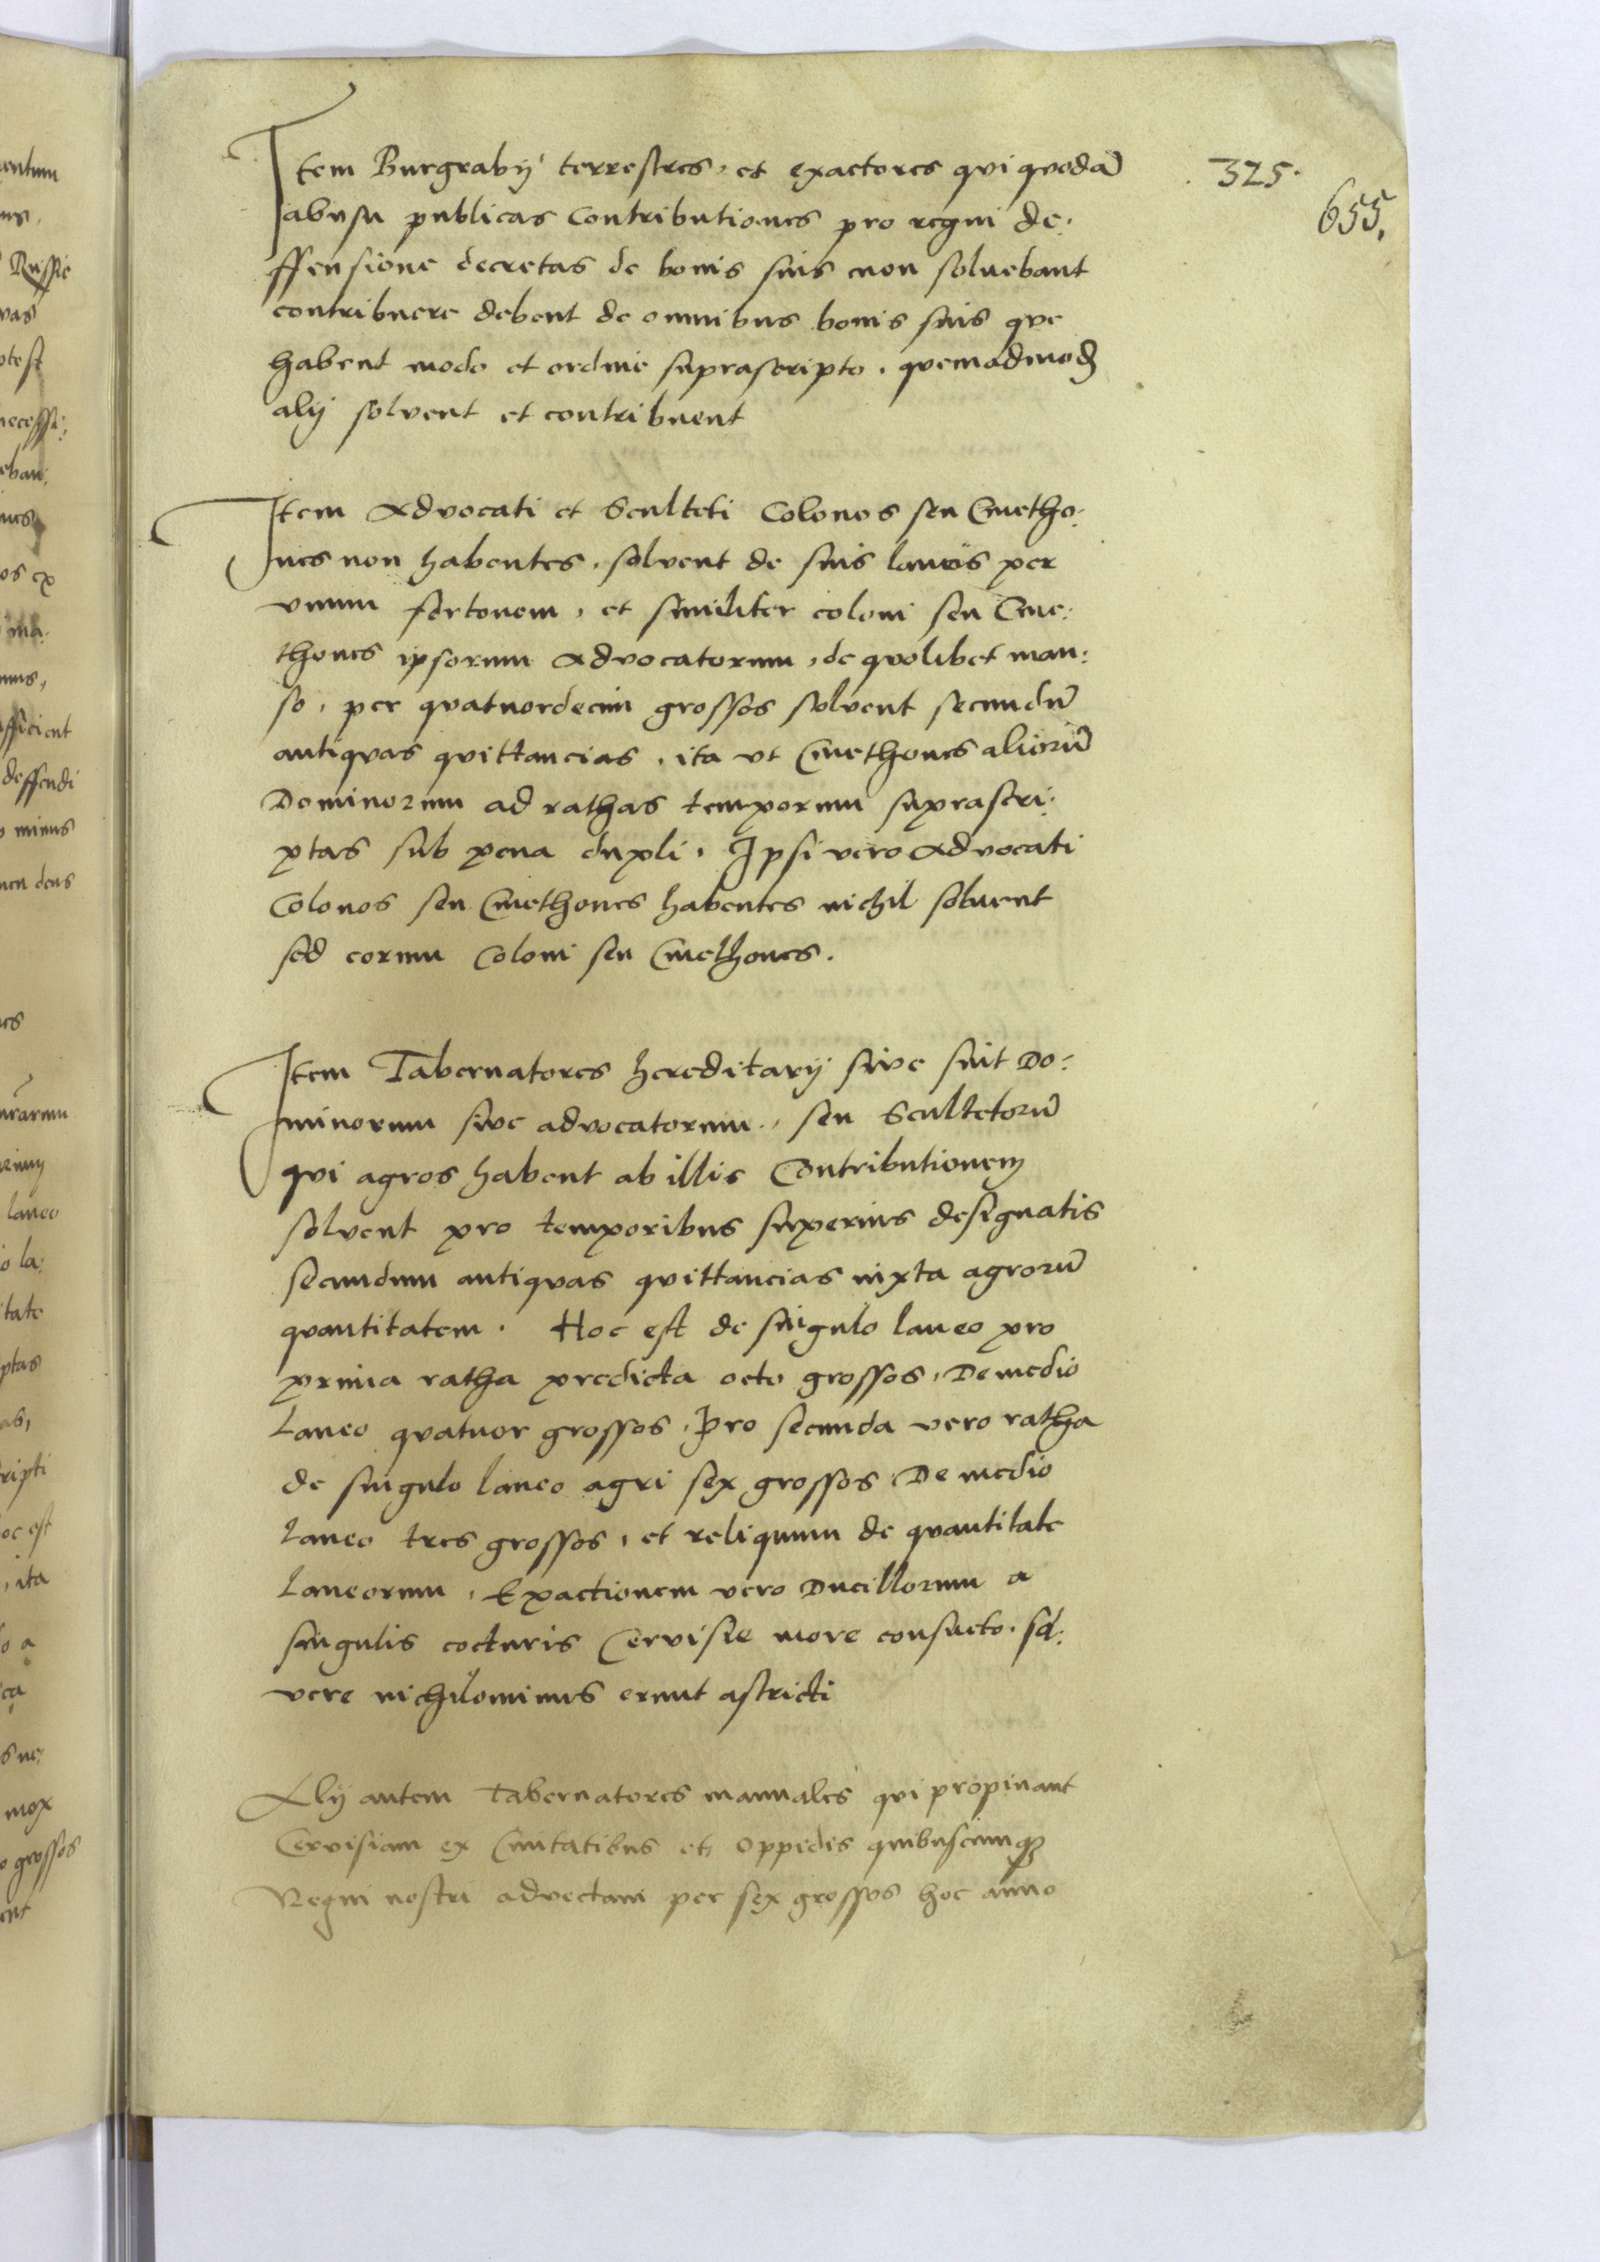 325.
655.
Item Burgrabij terrestres, et exactores qui quodã
abusu publicas Contributiones pro regni de:
ffensione decretas de bonis suis non soluebant
contribuere debent de omnibus bonis suis que
habent modo et ordine suprascripto, quemadmodũ
alij solvent et contribuent
Item Advocati et Sculteti Colonos seu Cmetho:
nes non habentes, solvent de suis laneis per
vnum fertonem, et similiter coloni seu Cme:
thones ipsorum Advocatorum, de quolibet man:
so, per quatuordecim grossos solvent secundũ
antiquas quittancias, ita vt Cmethones aliorũ
Dominorum ad rathas temporum suprascri:
ptas sub pena dupli. Ipsi vero Advocati
Colonos seu Cmethones habentes nichil soluent
sed eorum Coloni seu Cmethones.
Item Tabernatores hereditarij sive sint Do:
minorum sive advocatorum, seu Scultetorũ
qui agros habent ab illis Contributionem
solvent pro temporibus superius designatis
secundum antiquas quittancias iuxta agrorũ
quantitatem. Hoc est de singulo laneo pro
prima ratha predicta octo grossos, De medio
Laneo quatuor grossos, Pro secunda vero ratha
de singulo laneo agri sex grossos De medio
Laneo tres grossos, et reliquum de quantitate
Laneorum, Exactionem vero Ducillorum a
singulis cocturis Cervisie more consueto, sol:
vere nichilominus erunt astricti
Alij autem Tabernatores manuales qui propinant
Cervisiam ex Civitatibus et Oppidis quibuscumq3
Regni nostri advectam per sex grossos hoc anno